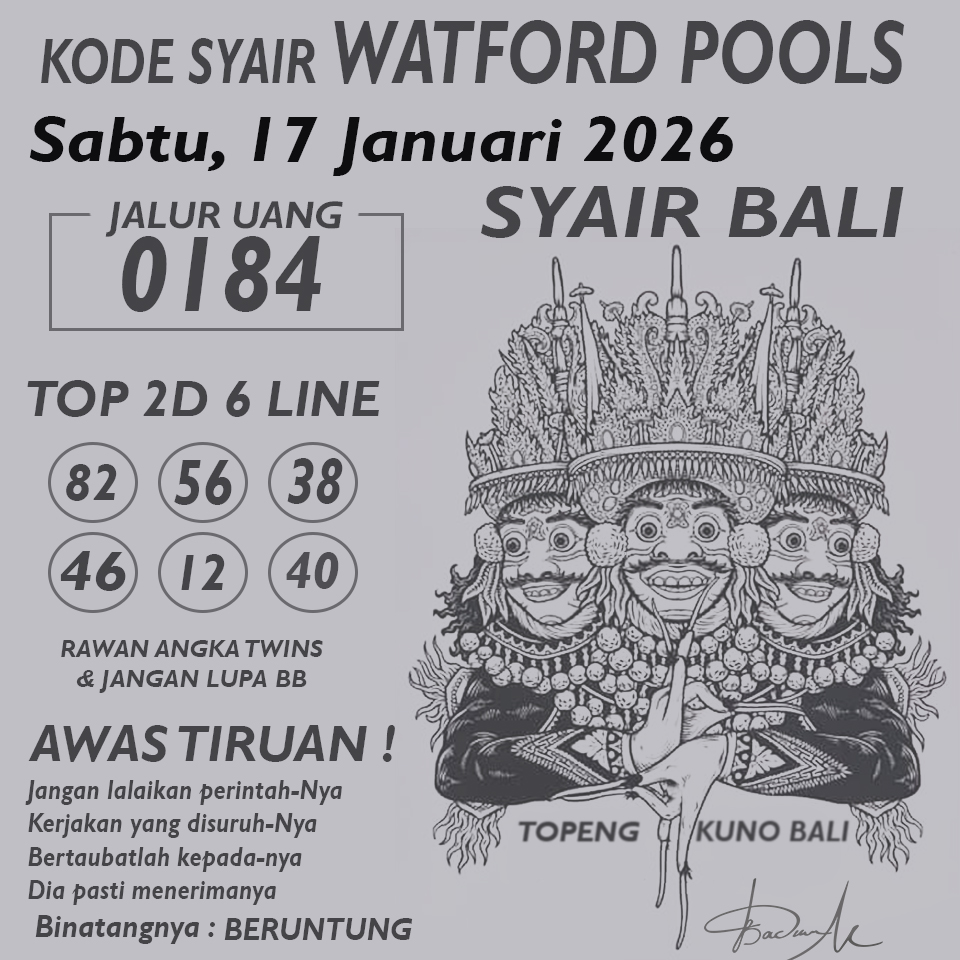 KODE SYAIR WATFORD POOLS
Sabtu, 17 Januari 2026
SYAIR BALI
JALUR UANG
0184
TOP 2D 6 LINE
82 56 38
46 12 40
RAWAN ANGKA TWINS
& JANGAN LUPA BB
AWAS TIRUAN !
Jangan lalaikan perintah-Nya
Kerjakan yang disuruh-Nya
Bertaubatlah kepada-nya
Dia pasti menerimanya
Binatangnya : BERUNTUNG
TOPENG KUNO BALI